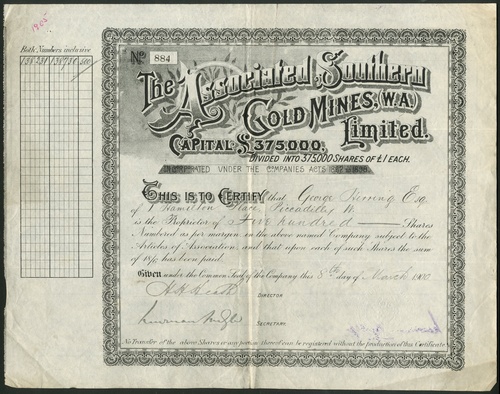 1905
Both Numbers inclusive
138281 138780 500
No. 884
The Associated Southern
Gold Mines, (W.A.)
Limited.
Capital £375,000,
Divided into 375000 Shares of £1 each.
Incorporated under the Companies Acts 1862 to 1898
This is to Certify that George Herring Esq
of 1 Hamilton Place Piccadilly W
is the Proprietor of Five hundred Shares
Numbered as per margin in the above named Company subject to the
Articles of Association, and that upon each of such Shares the sum
of 18/- has been paid.
Given under the Common Seal of the Company this 8th day of March
Director
Secretary
No Transfer of the above Shares or any portion thereof can be registered without the production of this Certificate.